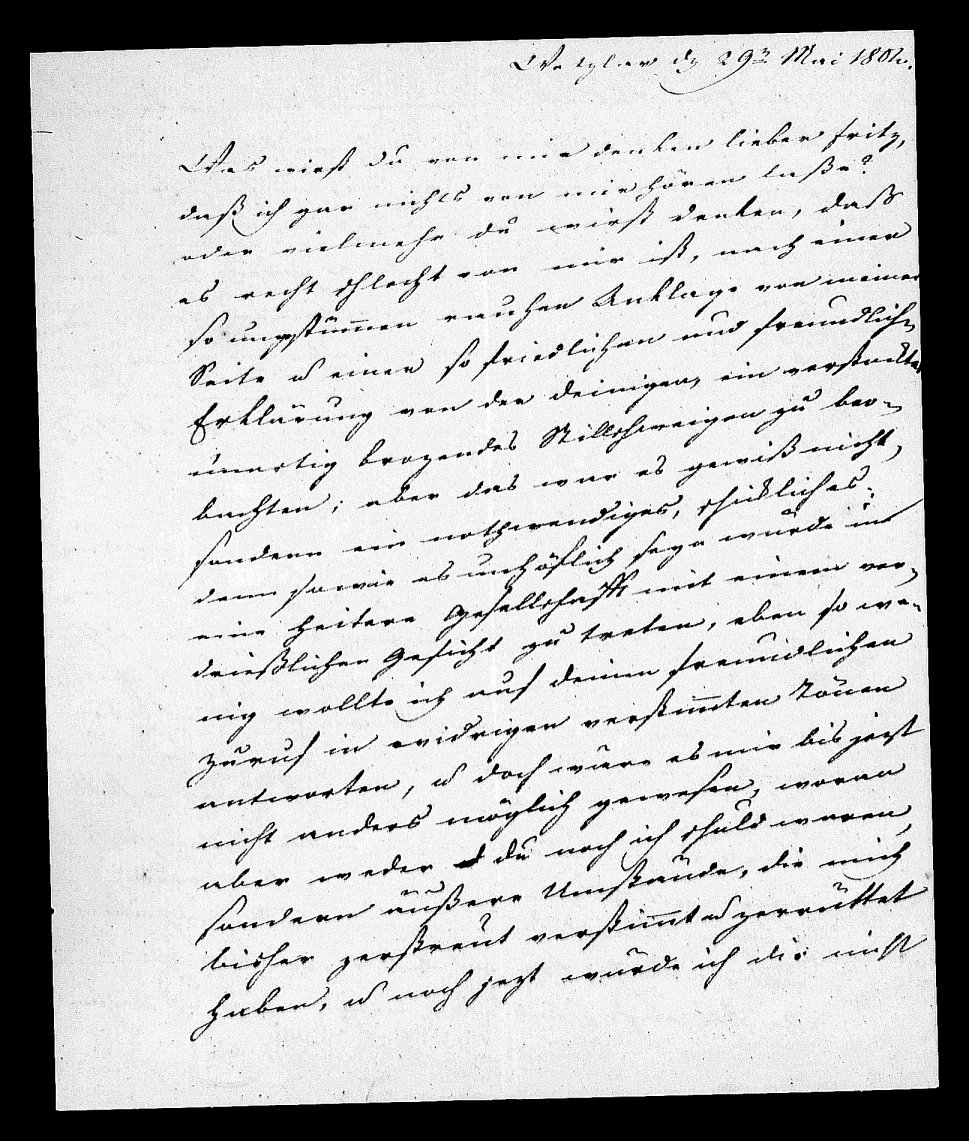 Wetzlar d 29n Mai 1804.
Was wirst du von mir denken lieber Fritz,
daß ich gar nichts von mir hören laße?
oder vielmehr du wirst denken, daß
es recht schlecht von mir ist, nach einer
so ungestümmen rauhen Anklage von meiner
Seite u einer so friedlichen und freundlichen
Erklärung von der deinigen, ein verstocktes
unartig brozendes Stillschweigen zu beo-
bachten; aber das war es gewiß nicht,
sondern ein nothwendiges, schickliches;
denn so wie es unhöflich seyn würde in
eine heitere Gesellschafft mit einem ver-
drießlichen Gesicht zu treten, eben so we-
nig wollte ich auf deinen freundlichen
Zuruf in widrigen verstimmten Tönen
antworten, u doch wäre es mir bis jezt
nicht anders möglich gewesen, woran
aber weder du noch ich schuld waren,
sondern äußere Umstände, die mich
bisher zerstreut verstimmt u zerrüttet
haben, u noch jezt würde ich dir nicht